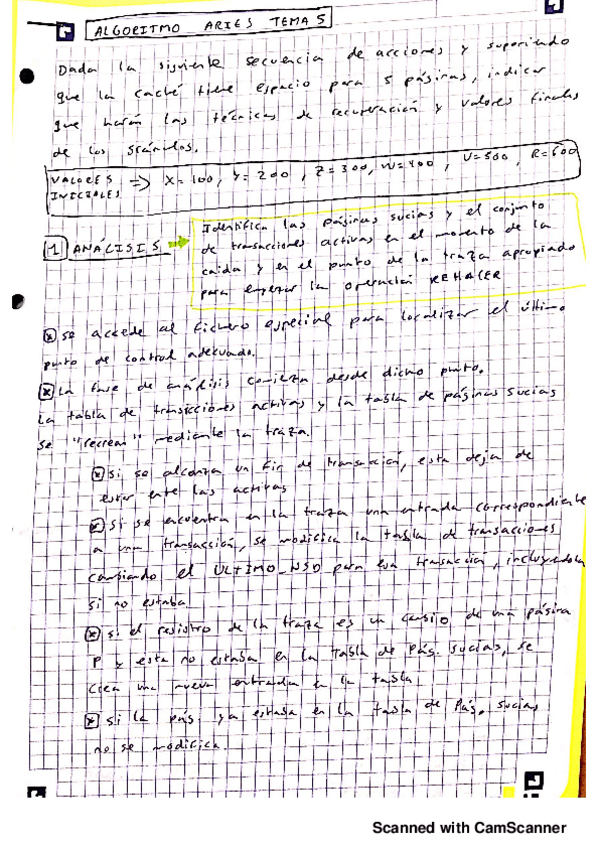 ALGORITMO ARIES TEMA 5
Dada la siguiente secuencia de acciones y suponiendo
que la caché tiene espacio para 5 páginas, indicar
que harán las técnicas de recuperación y valores finales
de los gránulos.
VALORES INICIALES => X=100, Y=200, Z=300, W=400, U=500, R=600
1 ANÁLISIS
Identifica las páginas sucias y el conjunto
de transacciones activas en el momento de la
caida y en el punto de la traza apropiado
para empezar la operación REHACER
* se accede al fichero especial para localizar el último
punto de control adecuado.
* La fase de análisis comienza desde dicho punto.
La tabla de transacciones activas y la tabla de páginas sucias
se "recrean" mediante la traza.
* Si se alcanza un fin de transacción, esta deja de
estar entre las activas
* Si se encuentra en la traza una entrada correspondiente
a una transacción, se modifica la tabla de transacciones
cambiando el ULTIMO_NSD para esa transacción, incluyendola
si no estaba
* Si el registro de la traza es un cambio de una página
P y esta no estaba en la tabla de pág. sucias, se
crea una nueva entrada en la tabla
* Si la pág. ya estaba en la tabla de Pág. sucias
no se modifica.
Scanned with CamScanner